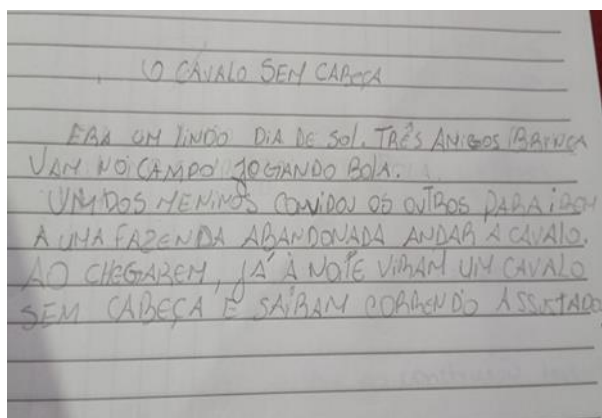 O CAVALO SEM CABEÇA
ERA UM LINDO DIA DE SOL. TRÊS AMIGOS BRINCA
VAM NO CAMPO JOGANDO BOLA.
UM DOS MENINOS CONVIDOU OS OUTROS PARA IREM
A UMA FAZENDA ABANDONADA ANDAR A CAVALO.
AO CHEGAREM, JÁ À NOITE VIRAM UM CAVALO
SEM CABEÇA E SAÍRAM CORRENDO ASSUSTADO